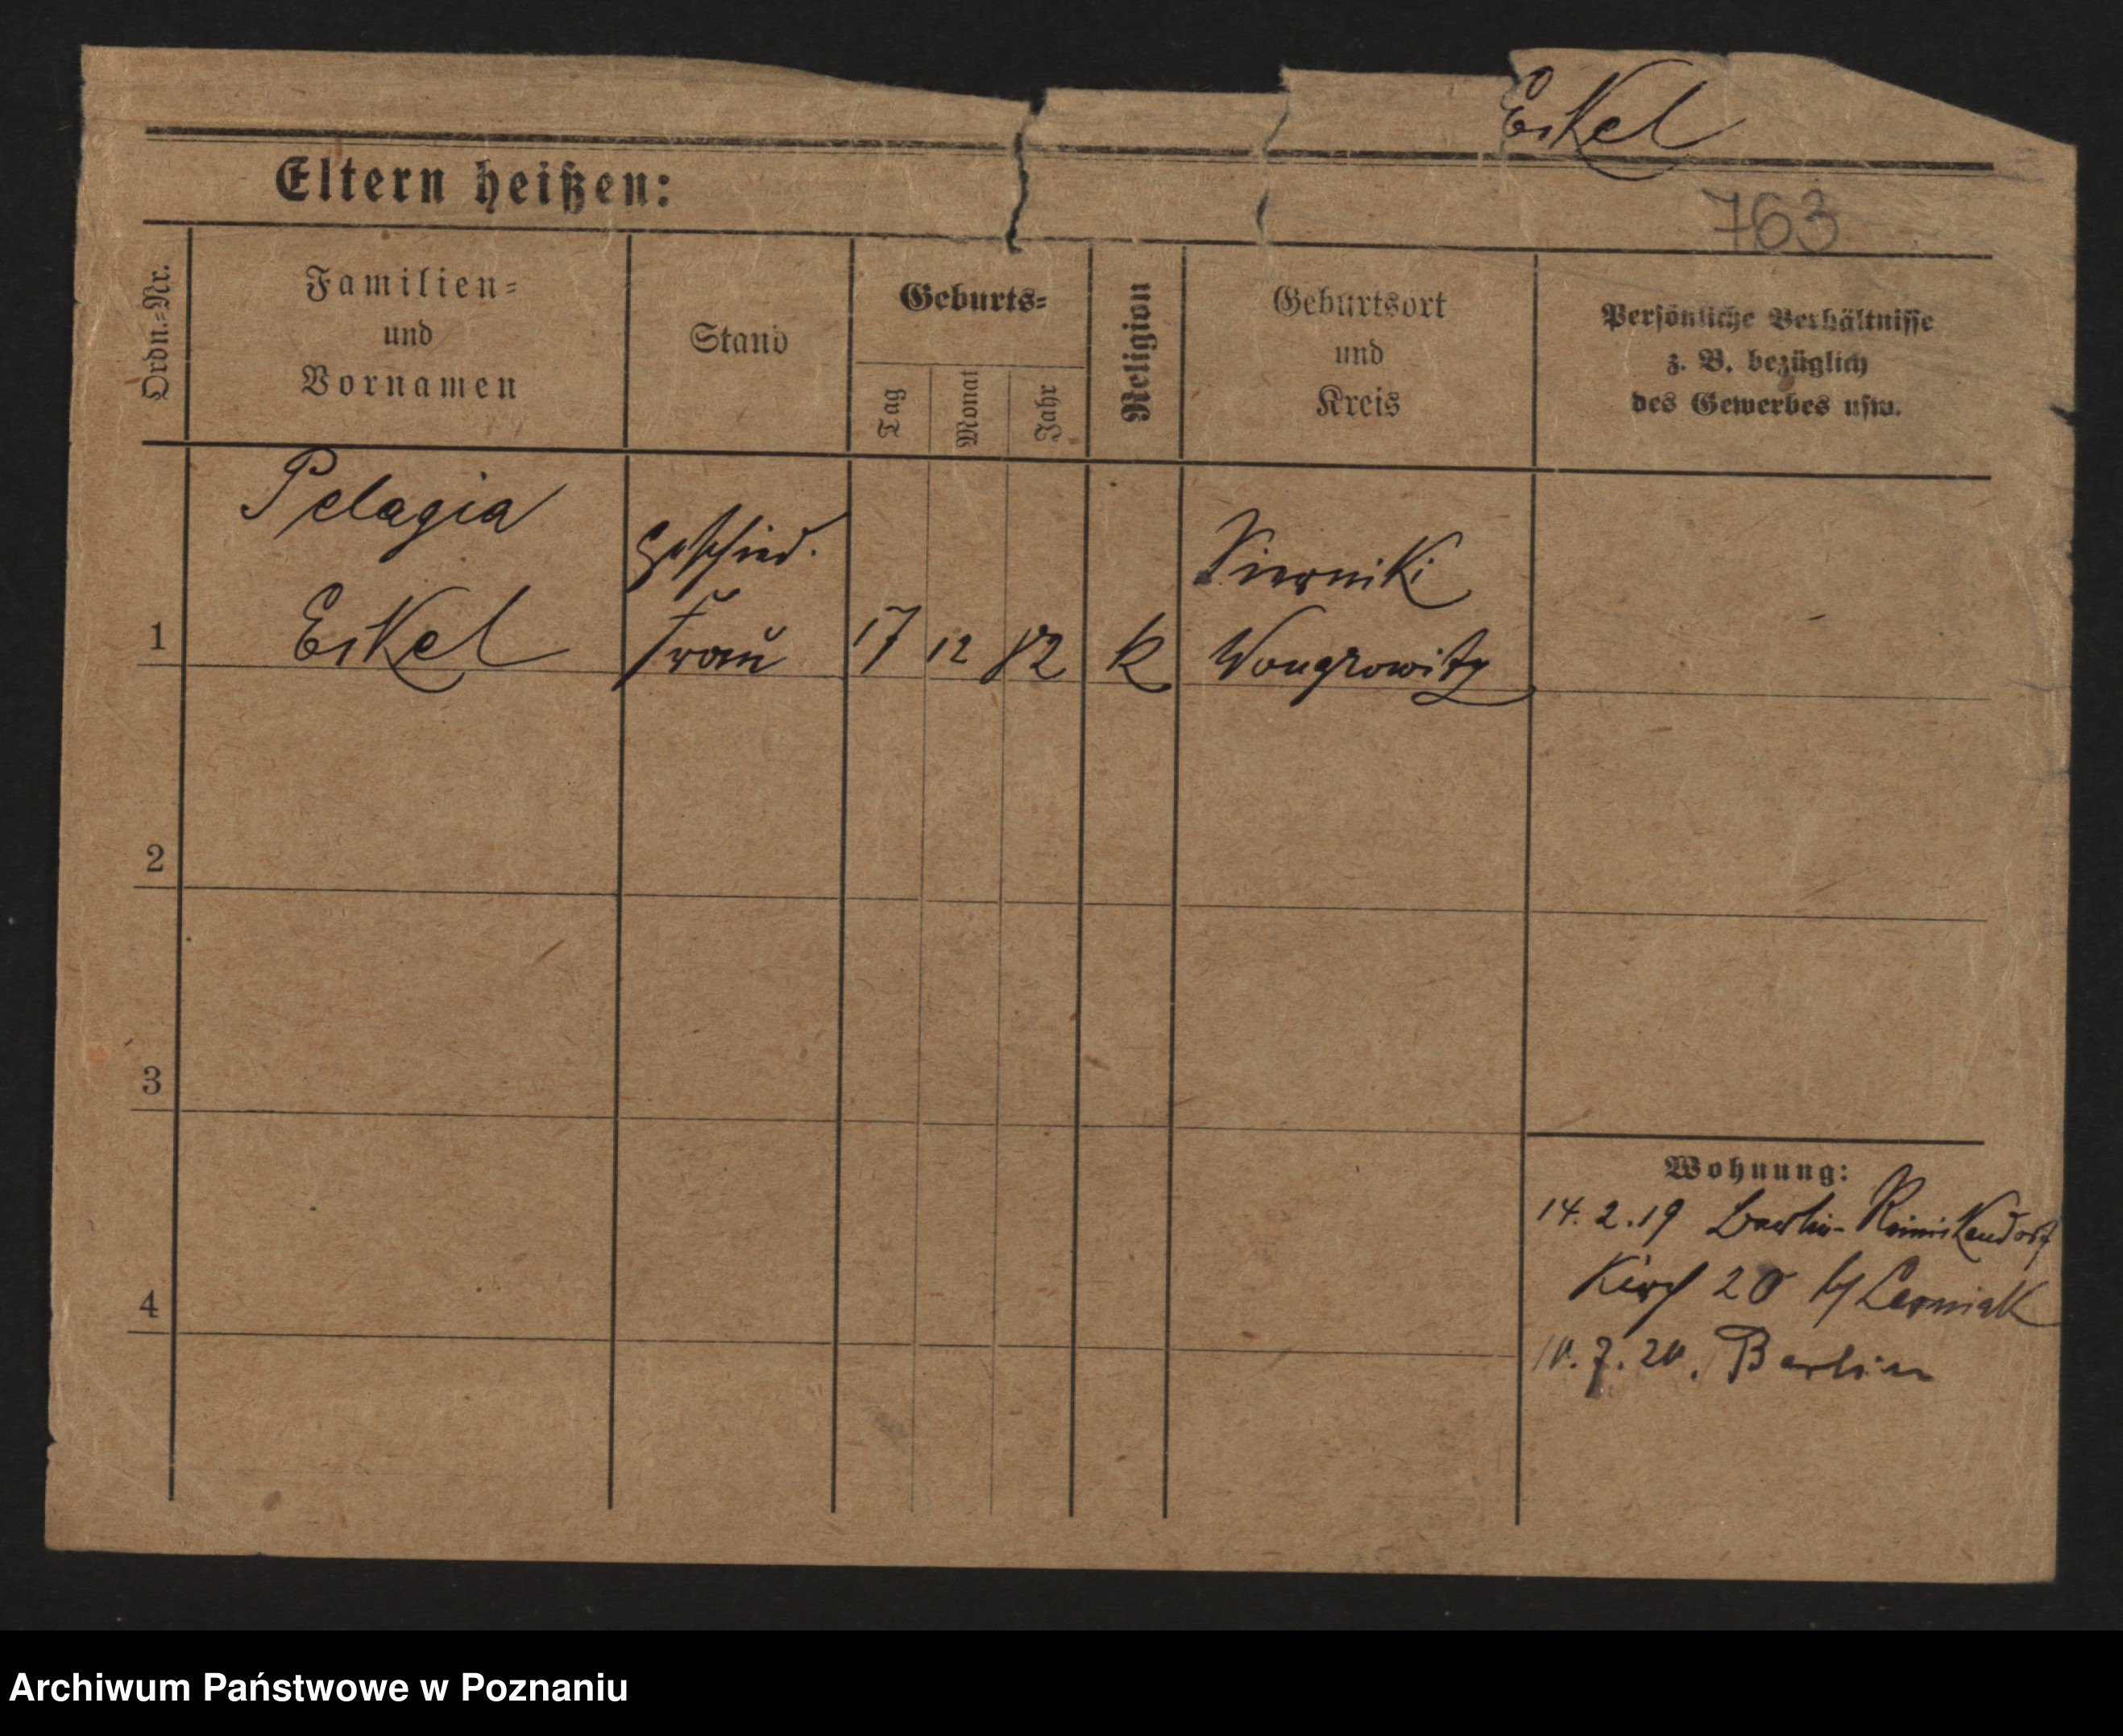 Eskel
Eltern heißen:
763
Ordn.-Nr.
Familien-
und
Vornamen
Stand
Geburts-
Tag
Monat
Jahr
Religion
Geburtsort
und
Kreis
Persönliche Verhältnisse
z. B. bezüglich
des Gewerbes usw.
1
Pelagia
Eskel
geschied.
Frau
17
12
82
k
Sierniki
Wongrowitz
2
3
4
Wohnung:
14.2.19 Berlin-Reinickendorf
Kirch 20 b/
10.7.20. Berlin
Archiwum Państwowe w Poznaniu